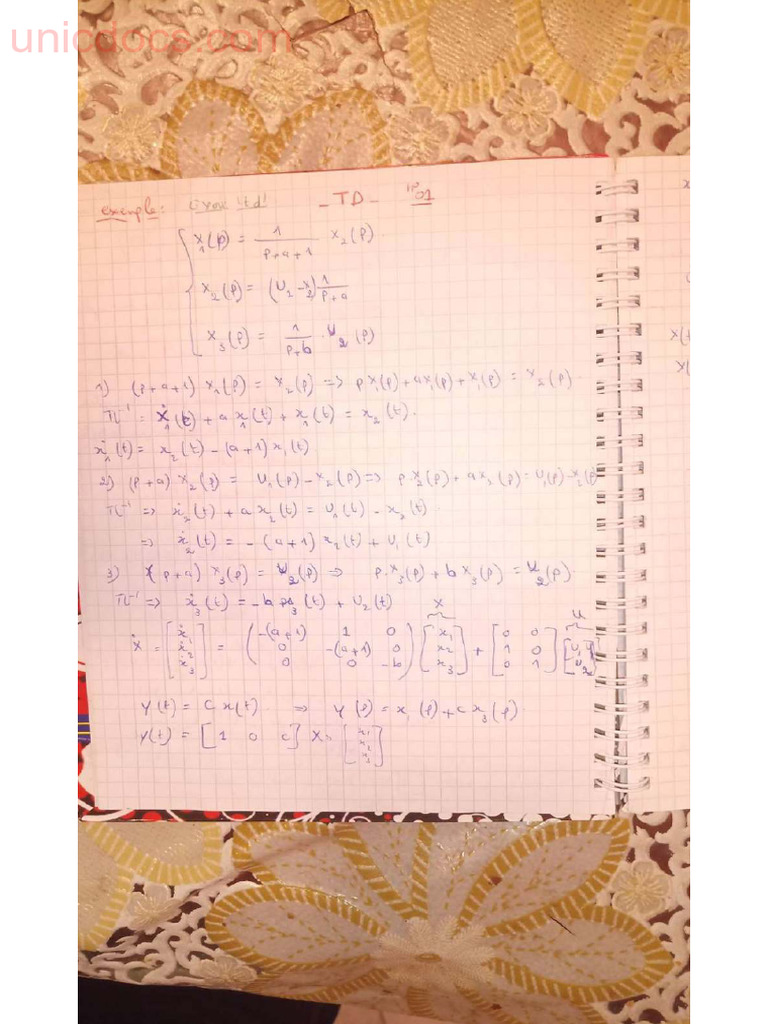 unicdocs.com
exemple: - TD - n°01
X₁(p) = 1/(p+a+1) X₂(p)
X₂(p) = (U₂ - X₂) 1/(p+a)
X₃(p) = 1/(p+b) · U₂(p)
1) (p+a+1) X₁(p) = X₂(p) => p X₁(p) + aX₁(p) + X₁(p) = X₂(p)
TL⁻¹ = ẋ₁(t) + a x₁(t) + x₁(t) = x₂(t).
ẋ₁(t) = x₂(t) - (a+1) x₁(t)
2) (p+a) X₂(p) = U₁(p) - X₂(p) => p X₂(p) + a X₂(p) = U₁(p) - X₂(p)
TL⁻¹ => ẋ₂(t) + a x₂(t) = U₁(t) - x₂(t)
=> ẋ₂(t) = -(a+1) x₂(t) + U₁(t)
3) (p+a) X₃(p) = U₂(p) => p·X₃(p) + b X₃(p) = U₂(p)
TL⁻¹ => ẋ₃(t) = -b x₃(t) + U₂(t)
X U
Ẋ = [ẋ₁ ẋ₂ ẋ₃] = (-(a+1) 1 0 0 -(a+1) 0 0 0 -b) [x₁ x₂ x₃] + [0 0 1 0 0 1] [U₁ U₂]
Y(t) = C x(t) => Y(p) = x₁(p) + c x₃(p)
Y(t) = [1 0 c] X = [x₁ x₂ x₃]